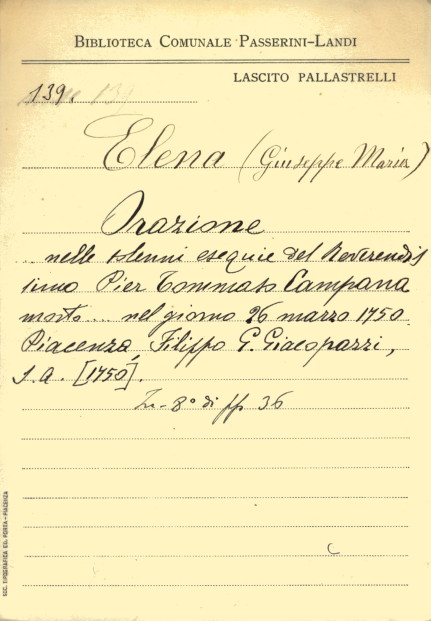 BIBLIOTECA COMUNALE PASSERINI-LANDI
LASCITO PALLASTRELLI
139.
Elena (Giuseppe Maria)
Orazione
... nelle solenni esequie del Reverendis
simo Pier Tommaso Campana
morto ... nel giorno 26 marzo 1750.
Piacenza, Filippo G. Giacopazzi,
s.a. [1750].
In-8° di pp 36
SOC. TIPOGRAFICA ED. PORTA - PIACENZA